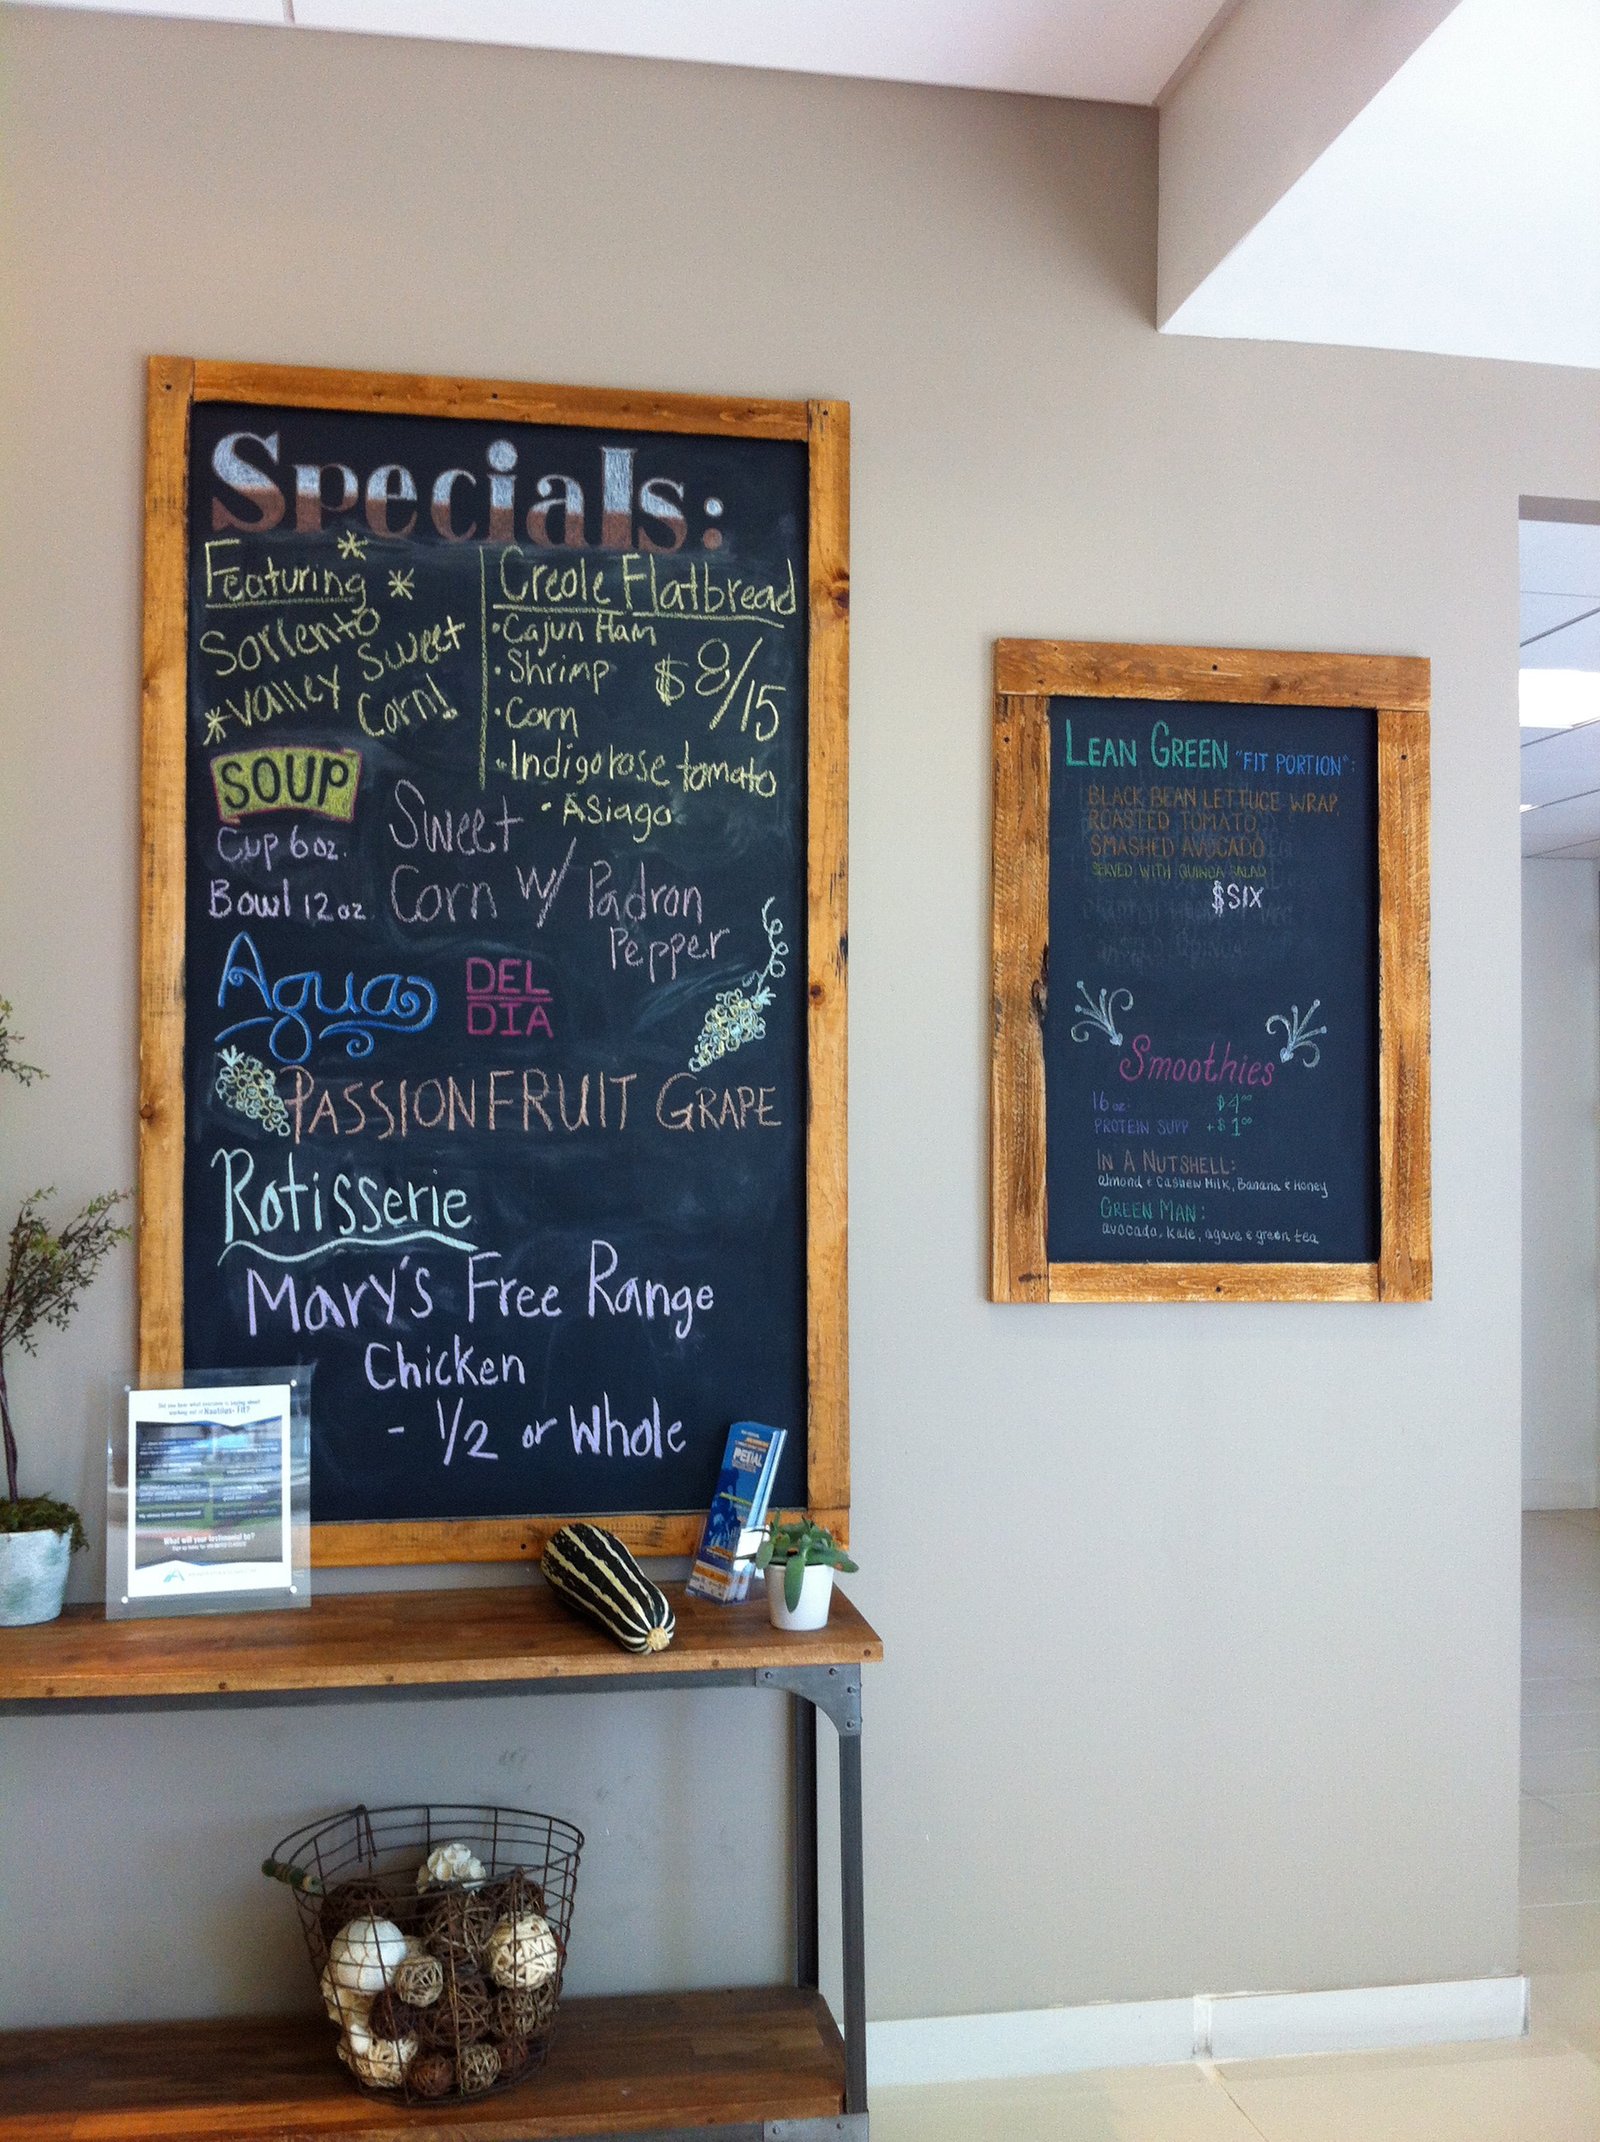 Specials:
Featuring
Sorrento
Valley Sweet
Corn!
Creole Flatbread
• Cajun Ham
• Shrimp
$8/15
• Corn
• Indigo rose tomato
• Asiago
SOUP
Cup 6 oz.
Bowl 12 oz.
Sweet
Corn w/ Padron
Pepper
Agua
DEL
DIA
PASSIONFRUIT GRAPE
Rotisserie
Mary's Free Range
Chicken
- 1/2 or Whole
LEAN GREEN "FIT PORTION":
BLACK BEAN LETTUCE WRAP,
ROASTED TOMATO,
SMASHED AVOCADO
SERVED WITH QUINOA SALAD
$SIX
Smoothies
16 oz. $4.00
PROTEIN SUPP +$1.00
IN A NUTSHELL:
almond & Cashew Milk, Banana & Honey
GREEN MAN:
avocado, kale, agave & green tea
What will your testimonial be?
PEDAL